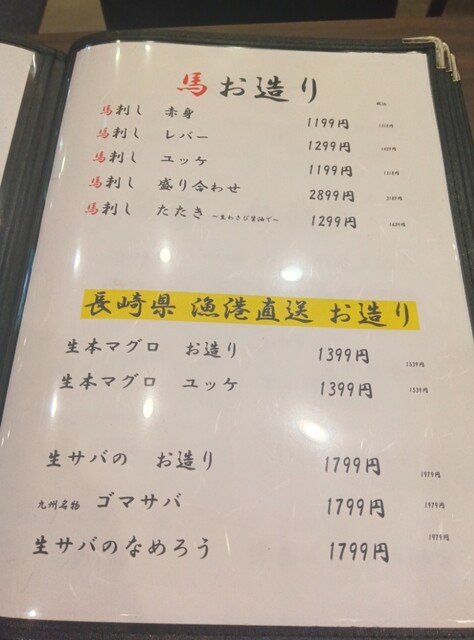 馬お造り
税込
馬刺し 赤身 1199円 1318円
馬刺し レバー 1299円 1429円
馬刺し ユッケ 1199円 1318円
馬刺し 盛り合わせ 2899円 3189円
馬刺し たたき ～生わさび醤油で～ 1299円 1429円
長崎県 漁港直送 お造り
生本マグロ お造り 1399円 1539円
生本マグロ ユッケ 1399円 1539円
生サバの お造り 1799円 1979円
九州名物 ゴマサバ 1799円 1979円
生サバのなめろう 1799円 1979円